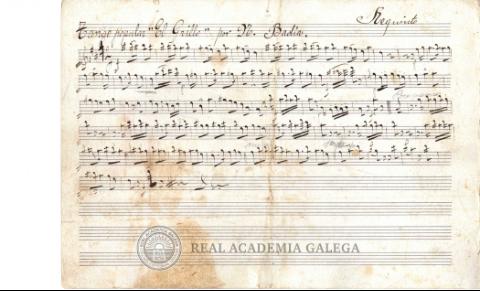 Tango popular "El Grillo" por M. Badía.
Requinto
REAL ACADEMIA GALEGA